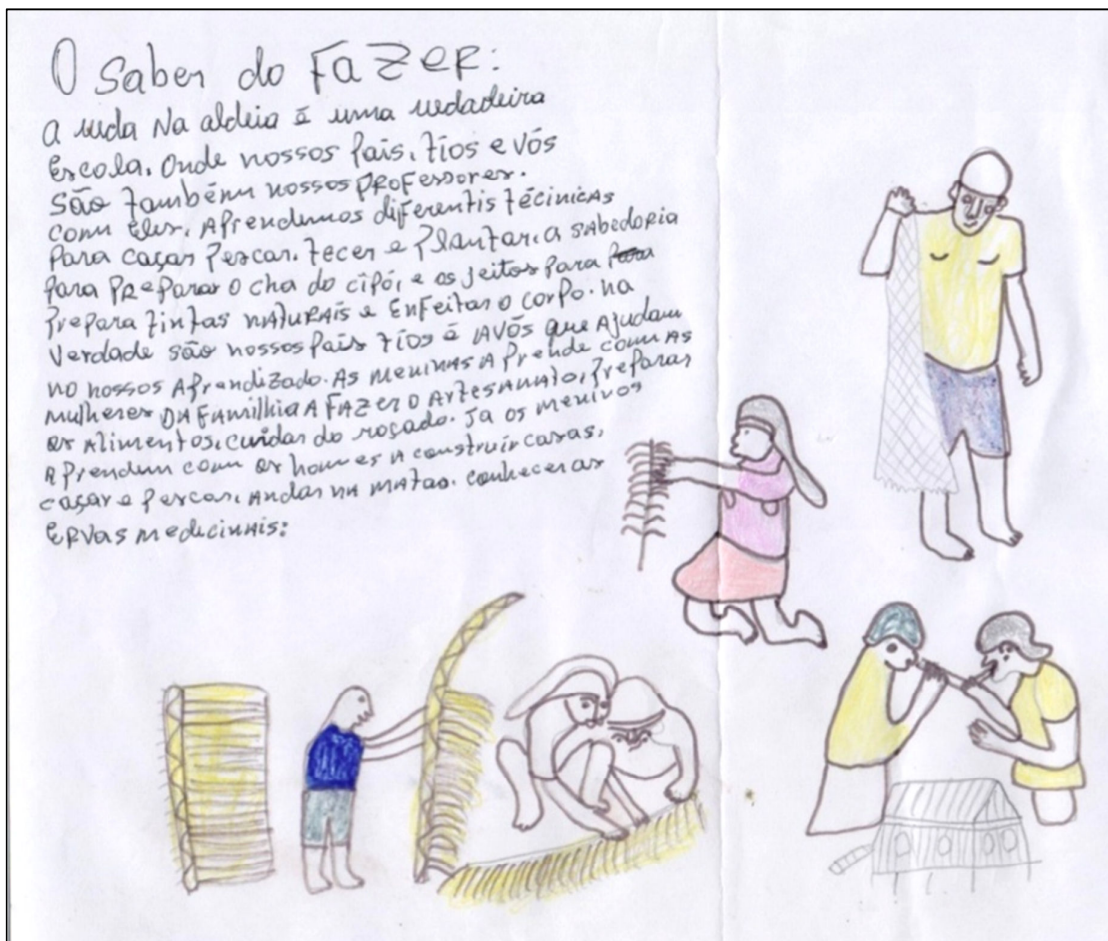 O Saber do FaZER:
a vida Na aldeia é uma verdadeira
Escola. Onde nossos Pais, Tios e vós
São também nossos PROFessores.
com Eles. Aprendemos diferentis técinicas
Para caçar Pescar. Tecer e Plantar. a sabedoria
para PREParar o cha do cipó, e os jeitos para
Prepara tintas NATURAIS e ENFeitar o corpo. na
Verdade são nossos Pais Tios é IAVÓS que AJudam
no nossos Aprendizado. As meninas Aprende com As
Mulheres DA Familhia A FAZER O ArTesaNaTo, Preparar
os Alimentos, cuidar do roçado. Ja os menivos
Aprendem com os homes A construir casas,
caçar e Pescar, Andar na MATAO. conhecer as
ERVas medicinais: